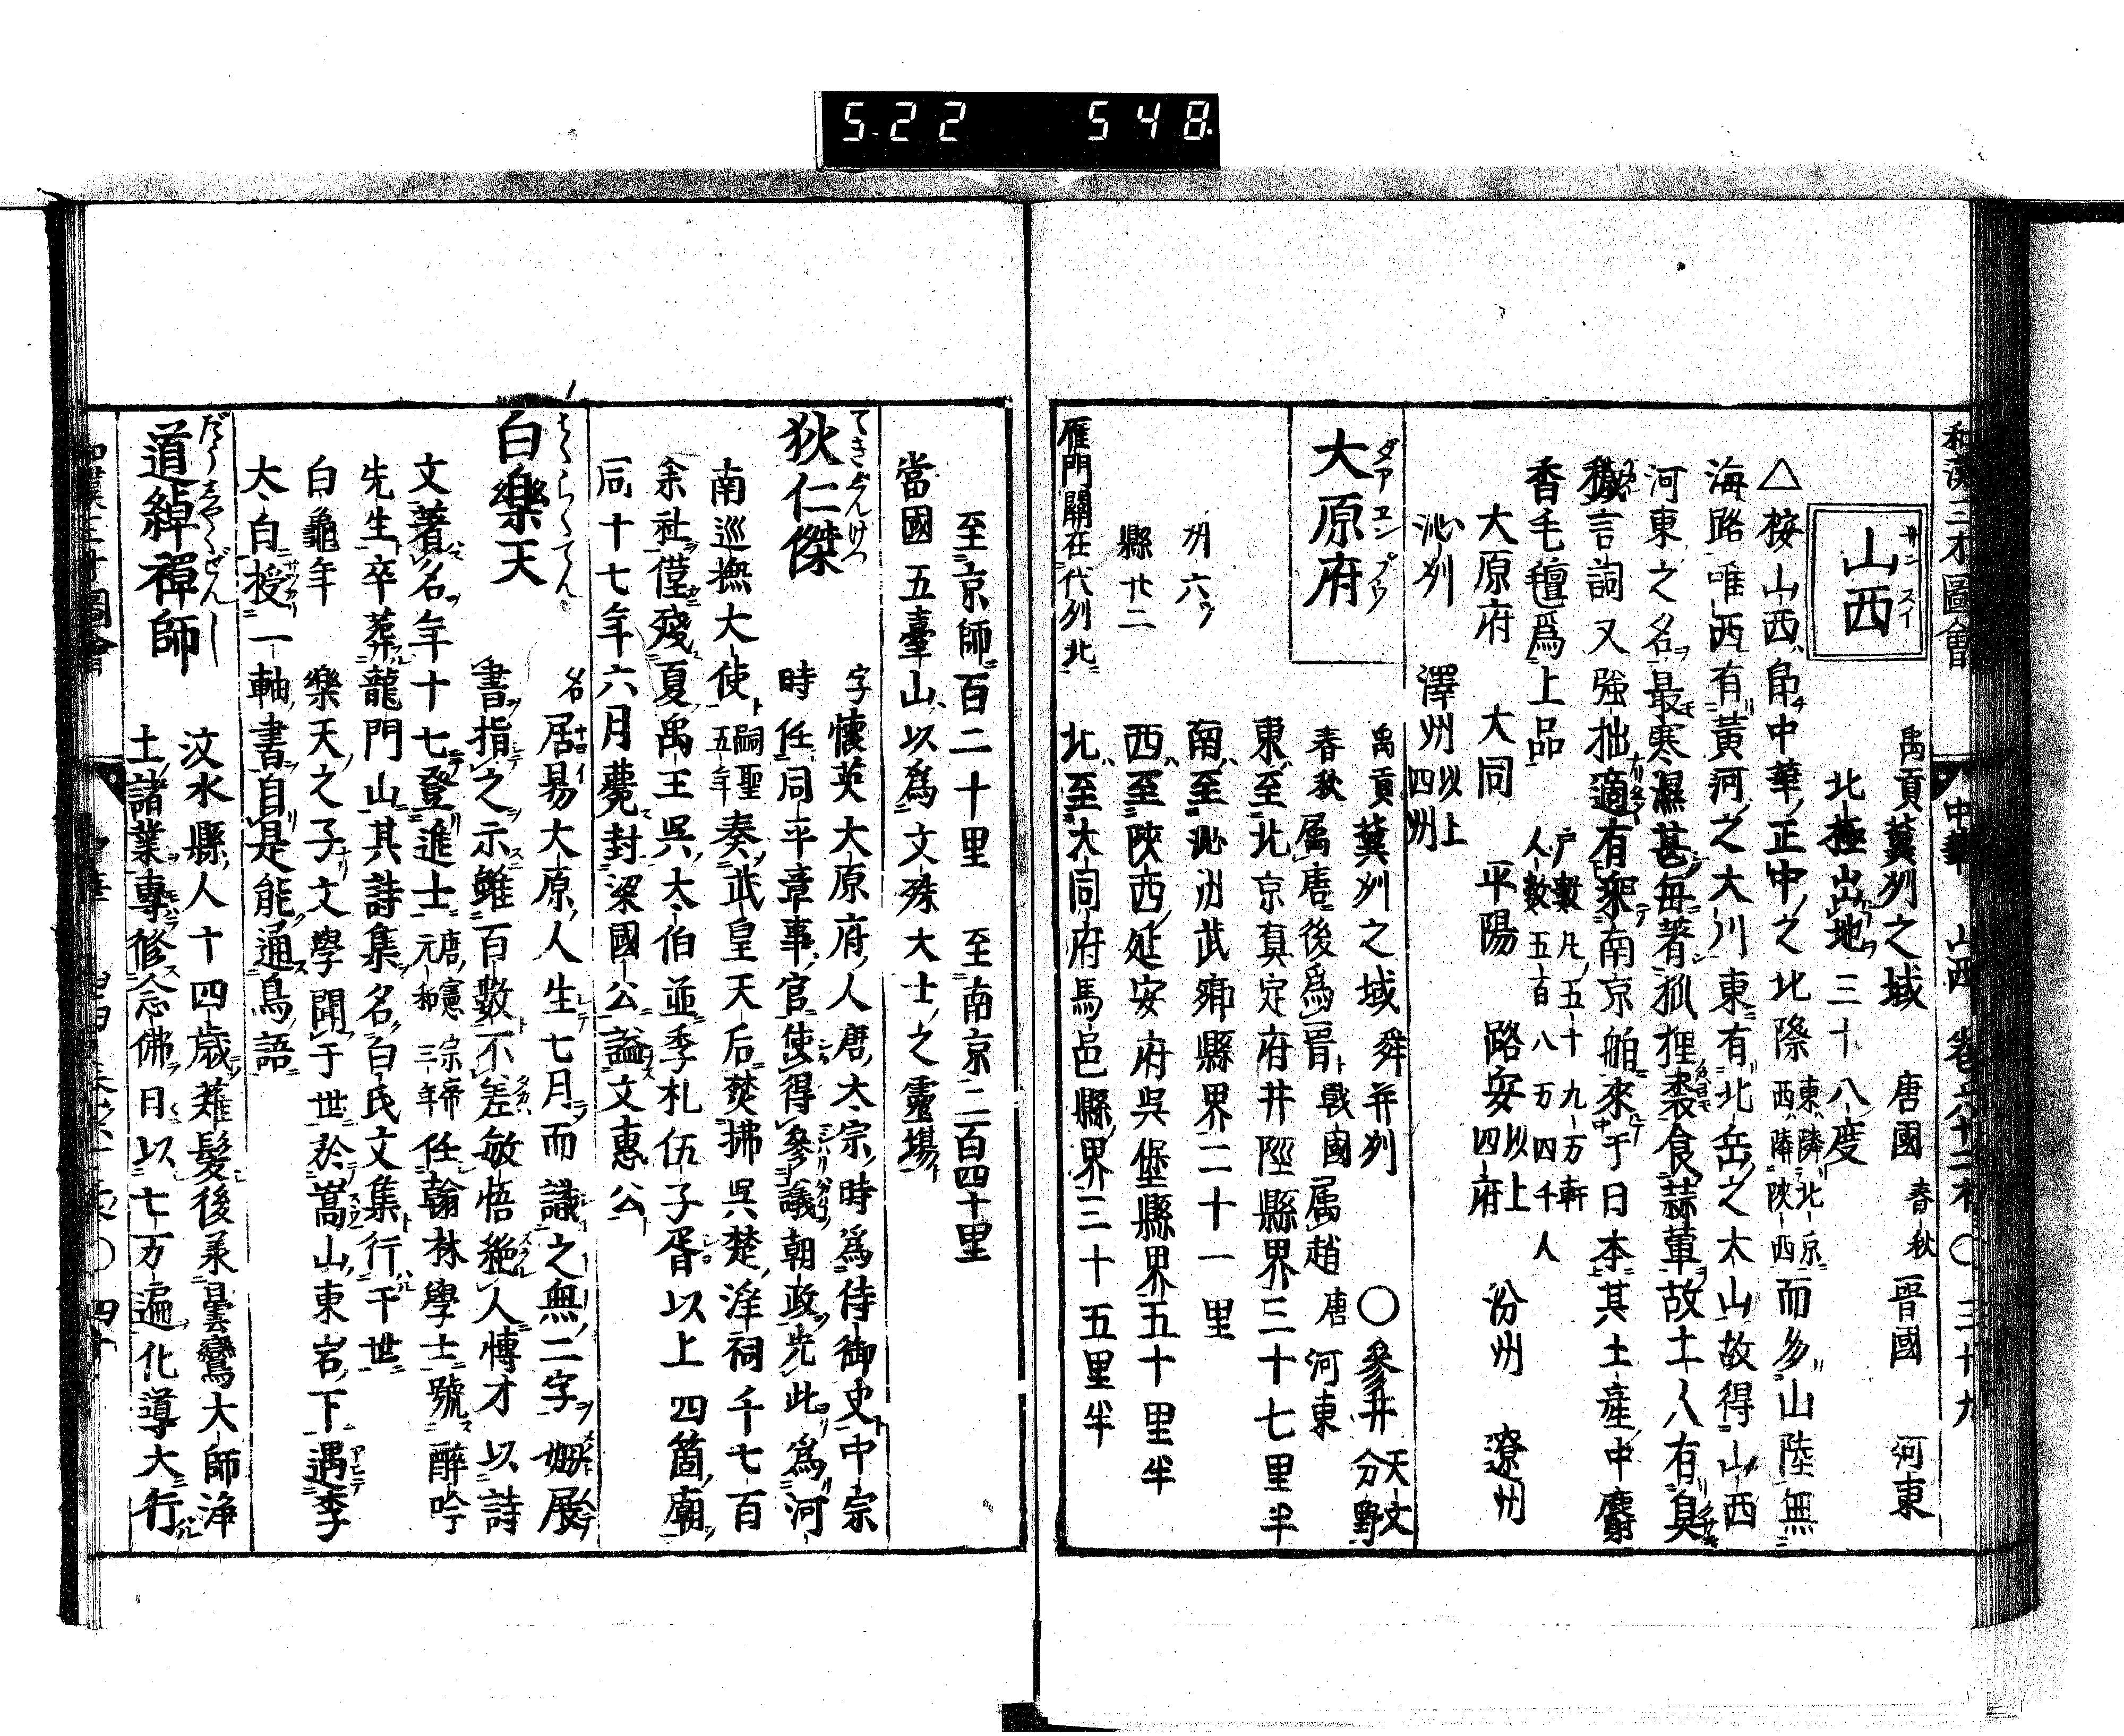 5.22 548.
和漢三才圖會 中華 山西 卷六十二本 ○ 三十九
山西 サンスイ
禹貢冀州之域 唐國 春秋 晋國 河東
北極出地三十八度
△按山西昂中華正中之北際 東隣北京 西隣陝西 而多山陸無
海路唯西有黃河之大川東有北岳之太山故得山西
河東之名最寒濕甚每著狐狸裘食蒜葷故土人有臭
穢言詞又強拙適有乘南京舶來于日本其土産中麝
香毛氈爲上品 戸數凡五十九万軒 人數五百八万四千人
大原府 大同 平陽 路安 以上四府 汾州 遼州
沁州 澤州 以上四州
大原府 ダアユンプウ
禹貢冀州之域 舜并州 ○參井 天文分野
春秋属唐後爲晋 戰國属趙 唐 河東
東至北京真定府井陘縣界三十七里半
州六ツ 南至沁州武鄉縣界二十一里
縣廿二 西至陝西延安府吳堡縣界五十里半
雁門關在代州北 北至大同府馬邑縣界三十五里半
至京師百二十里 至南京二百四十里
當國五臺山以爲文殊大士之靈場
狄仁傑 てきじんけつ
字懷英大原府人唐太宗時爲侍御史中宗
時任同平章事官使得參議朝政先此爲河
南巡撫大使 嗣聖五年 奏武皇天后焚拂呉楚滛祠千七百
余社僅殘夏禹王呉太伯並季札伍子胥以上四箇廟
同十七年六月薨封梁國公謚文惠公
白樂天 はくらくてん
名居易大原人生七月而識之無二字姆展
書指之示雖百數不差敏悟絶人慱才以詩
文著名年十七登進士 唐憲宗帝元和三年 任翰林學士號醉吟
先生卒葬龍門山其詩集名白氏文集行于世
白龜年 樂天之子文學聞于世於嵩山東岩下遇李
太白授一軸書自是能通鳥語
道綽禪師 だうしやくぜんし
汶水縣人十四歳薙髮後羕曇鸞大師浄
土諸業專修念佛日以七万遍化導大行